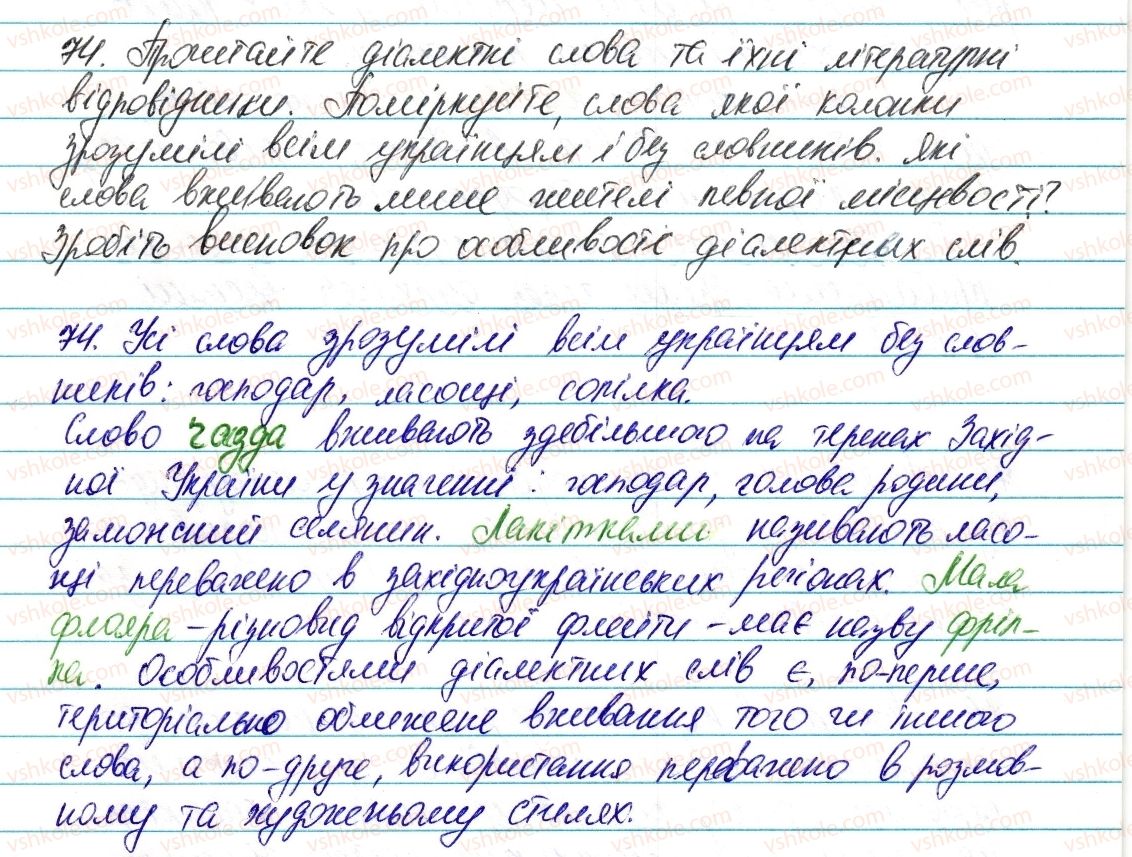 74. Прочитайте діалектні слова та їхні літературні
відповідники. Поміркуйте, слова якої колонки
зрозумілі всім українцям і без словників. Які
слова вживають лише жителі певної місцевості?
Зробіть висновок про особливості діалектних слів.
74. Усі слова зрозумілі всім українцям без слов-
ників: господар, ласощі, сопілка.
Слово ґазда вживають здебільшого на теренах Захід-
ної України у значенні: господар, голова родини,
заможний селянин. Лакітками називають ласо-
щі переважно в західноукраїнських регіонах. Мала
флояра - різновид відкритої флейти - має назву фріл-
ка. Особливостями діалектних слів є, по-перше,
територіально обмежене вживання того чи іншого
слова, а по-друге, використання переважно в розмов-
ному та художньому стилях.